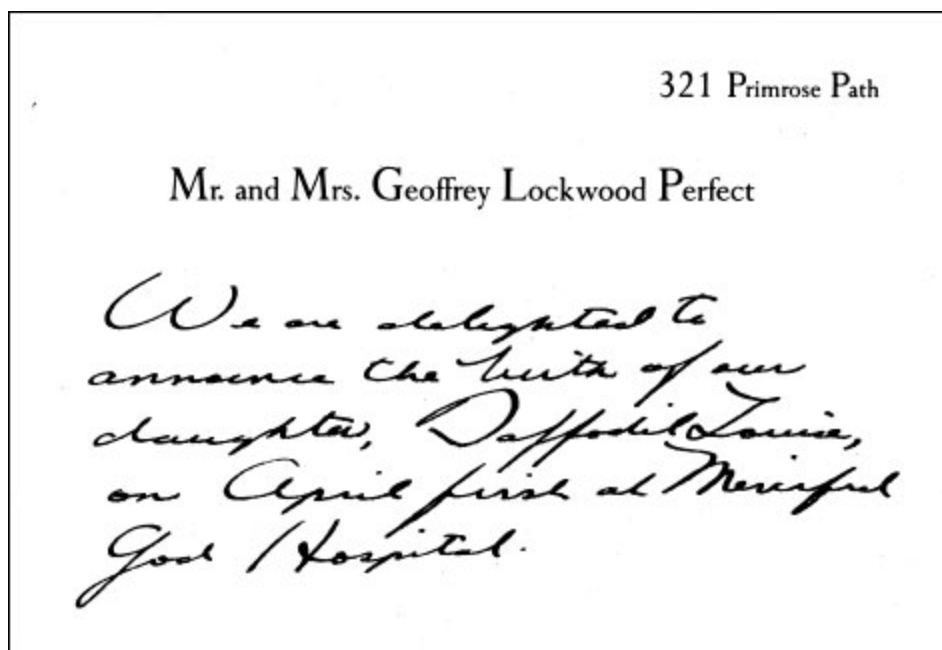 321 Primrose Path
Mr. and Mrs. Geoffrey Lockwood Perfect
We are delighted to
announce the birth of our
daughter, Daffodil Louise,
on April first at Merciful
God Hospital.